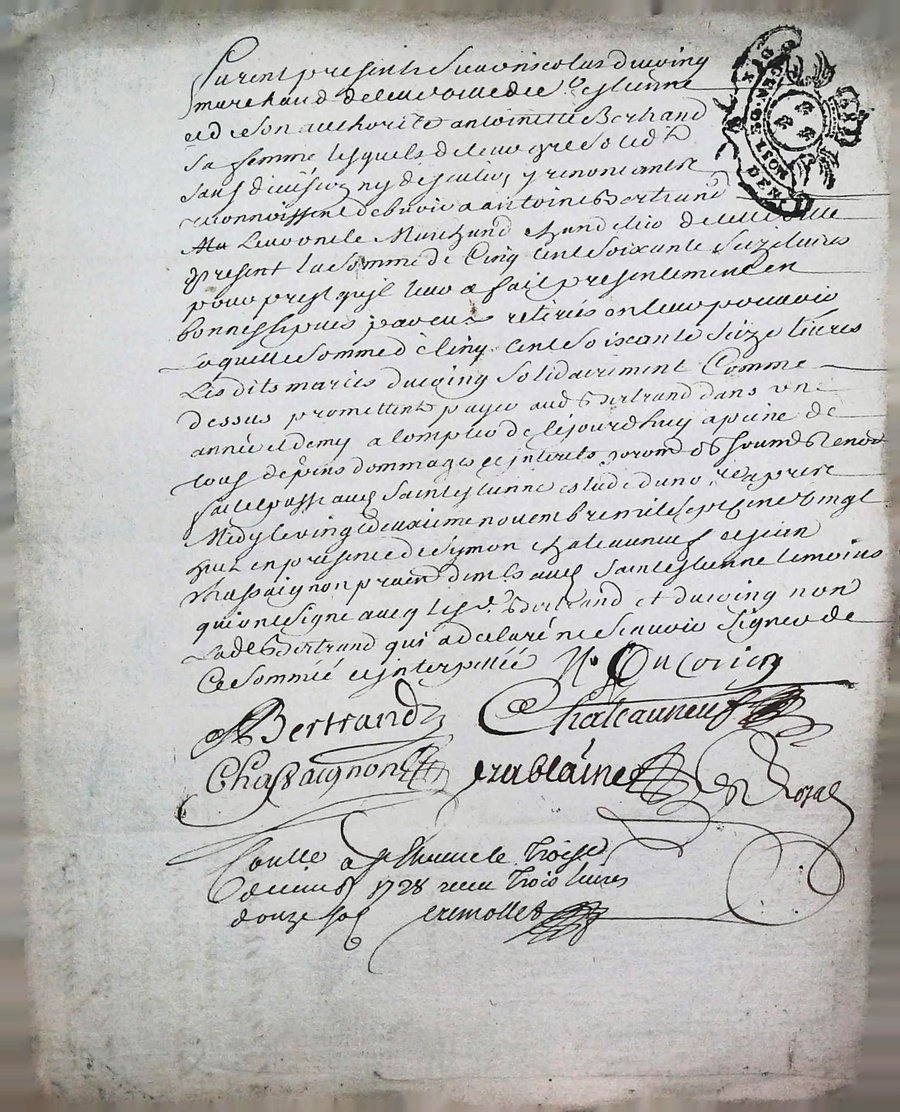 GEN. DE LION
DIX DEN.
Furent presents Sieur nicolas ducoing
marchand de leu de St estienne
et de Son authorité antoinette Bertrand
Sa femme lesquels de leur gre Solid.t
Sans division ny discution y renonceants
reconnoissent debvoir a antoine Bertrand
Marchand de
present la Somme de Cinq Cent Soixante Seize livres
pour prest qu'il leur a fait presentement en
bonnes Espices par eux retirés en leur pouvoir
laquelle Somme de Cinq Cent Soixante Seize livres
Les dits mariés ducoing Solidairement Comme
dessus promettent payer aud Bertrand dans une
année et demy a Compter de Cejourdhuy a peine de
tous depens dommages et interets
fait et passé aud Saint estienne estude du no.re
Midy le vingt deuxieme novembre mil Sept Cent vingt
huit en presence de Symon Chateauneuf et jean
Chassaignon praen demts aud Saintestienne temoins
qui ont Signé avec les d. Bertrand et ducoing non
lade Bertrand qui a declaré ne Scavoir Signer de
Ce Sommée et interpellée No Ducoin
A Bertrand Chateauneuf
Chassaignon erablaine no Royal
Conllé a St Etienne le Troise
decemb 1728 receu Trois livres
douze sol